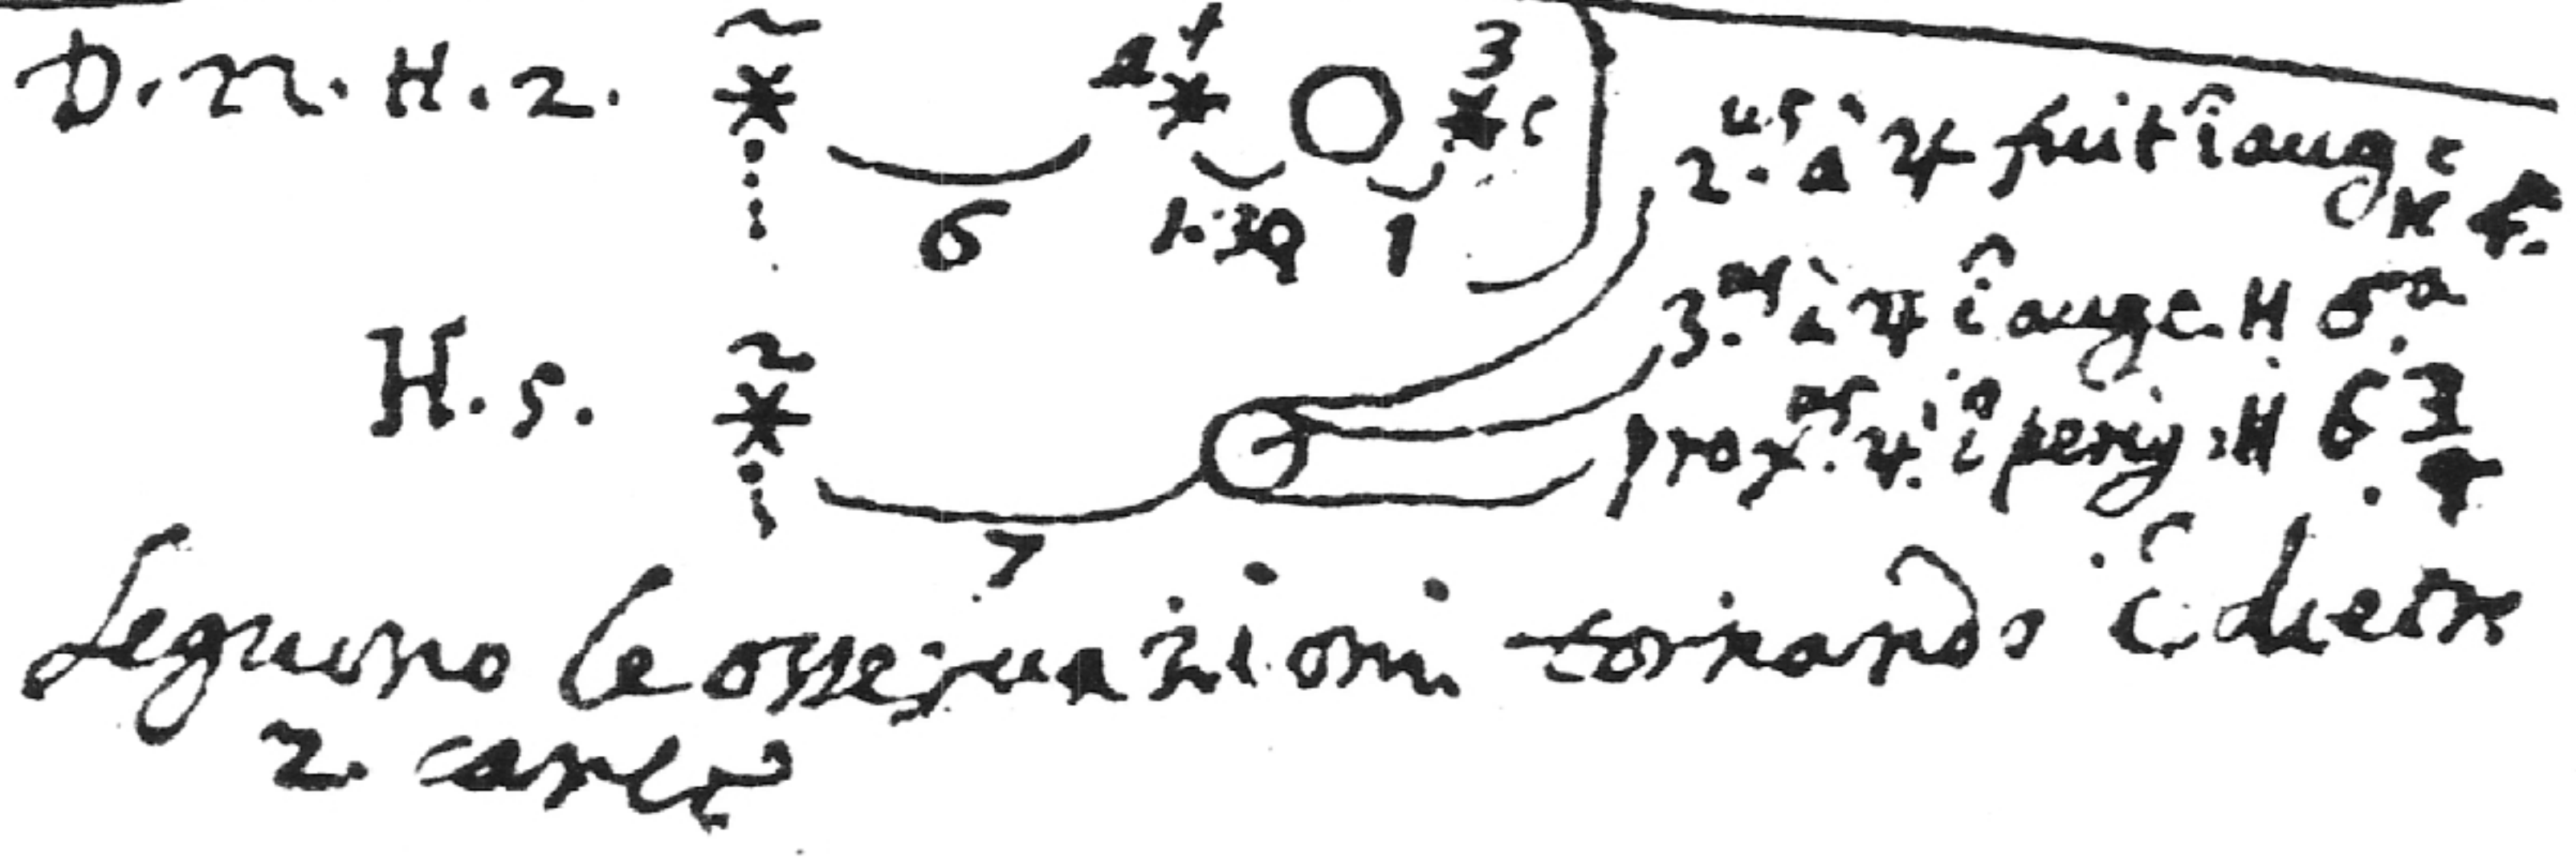 D. 22. H. 2.
4 3
6 1.30 1
2.us à ♃ fuit î auge
H 4.
3.us à ♃ î auge. H 6.a
H. 5.
prox.us ♃. î perig. H 6 3/4
7
Seguono le osseruazioni tornando î dietro
2. carte